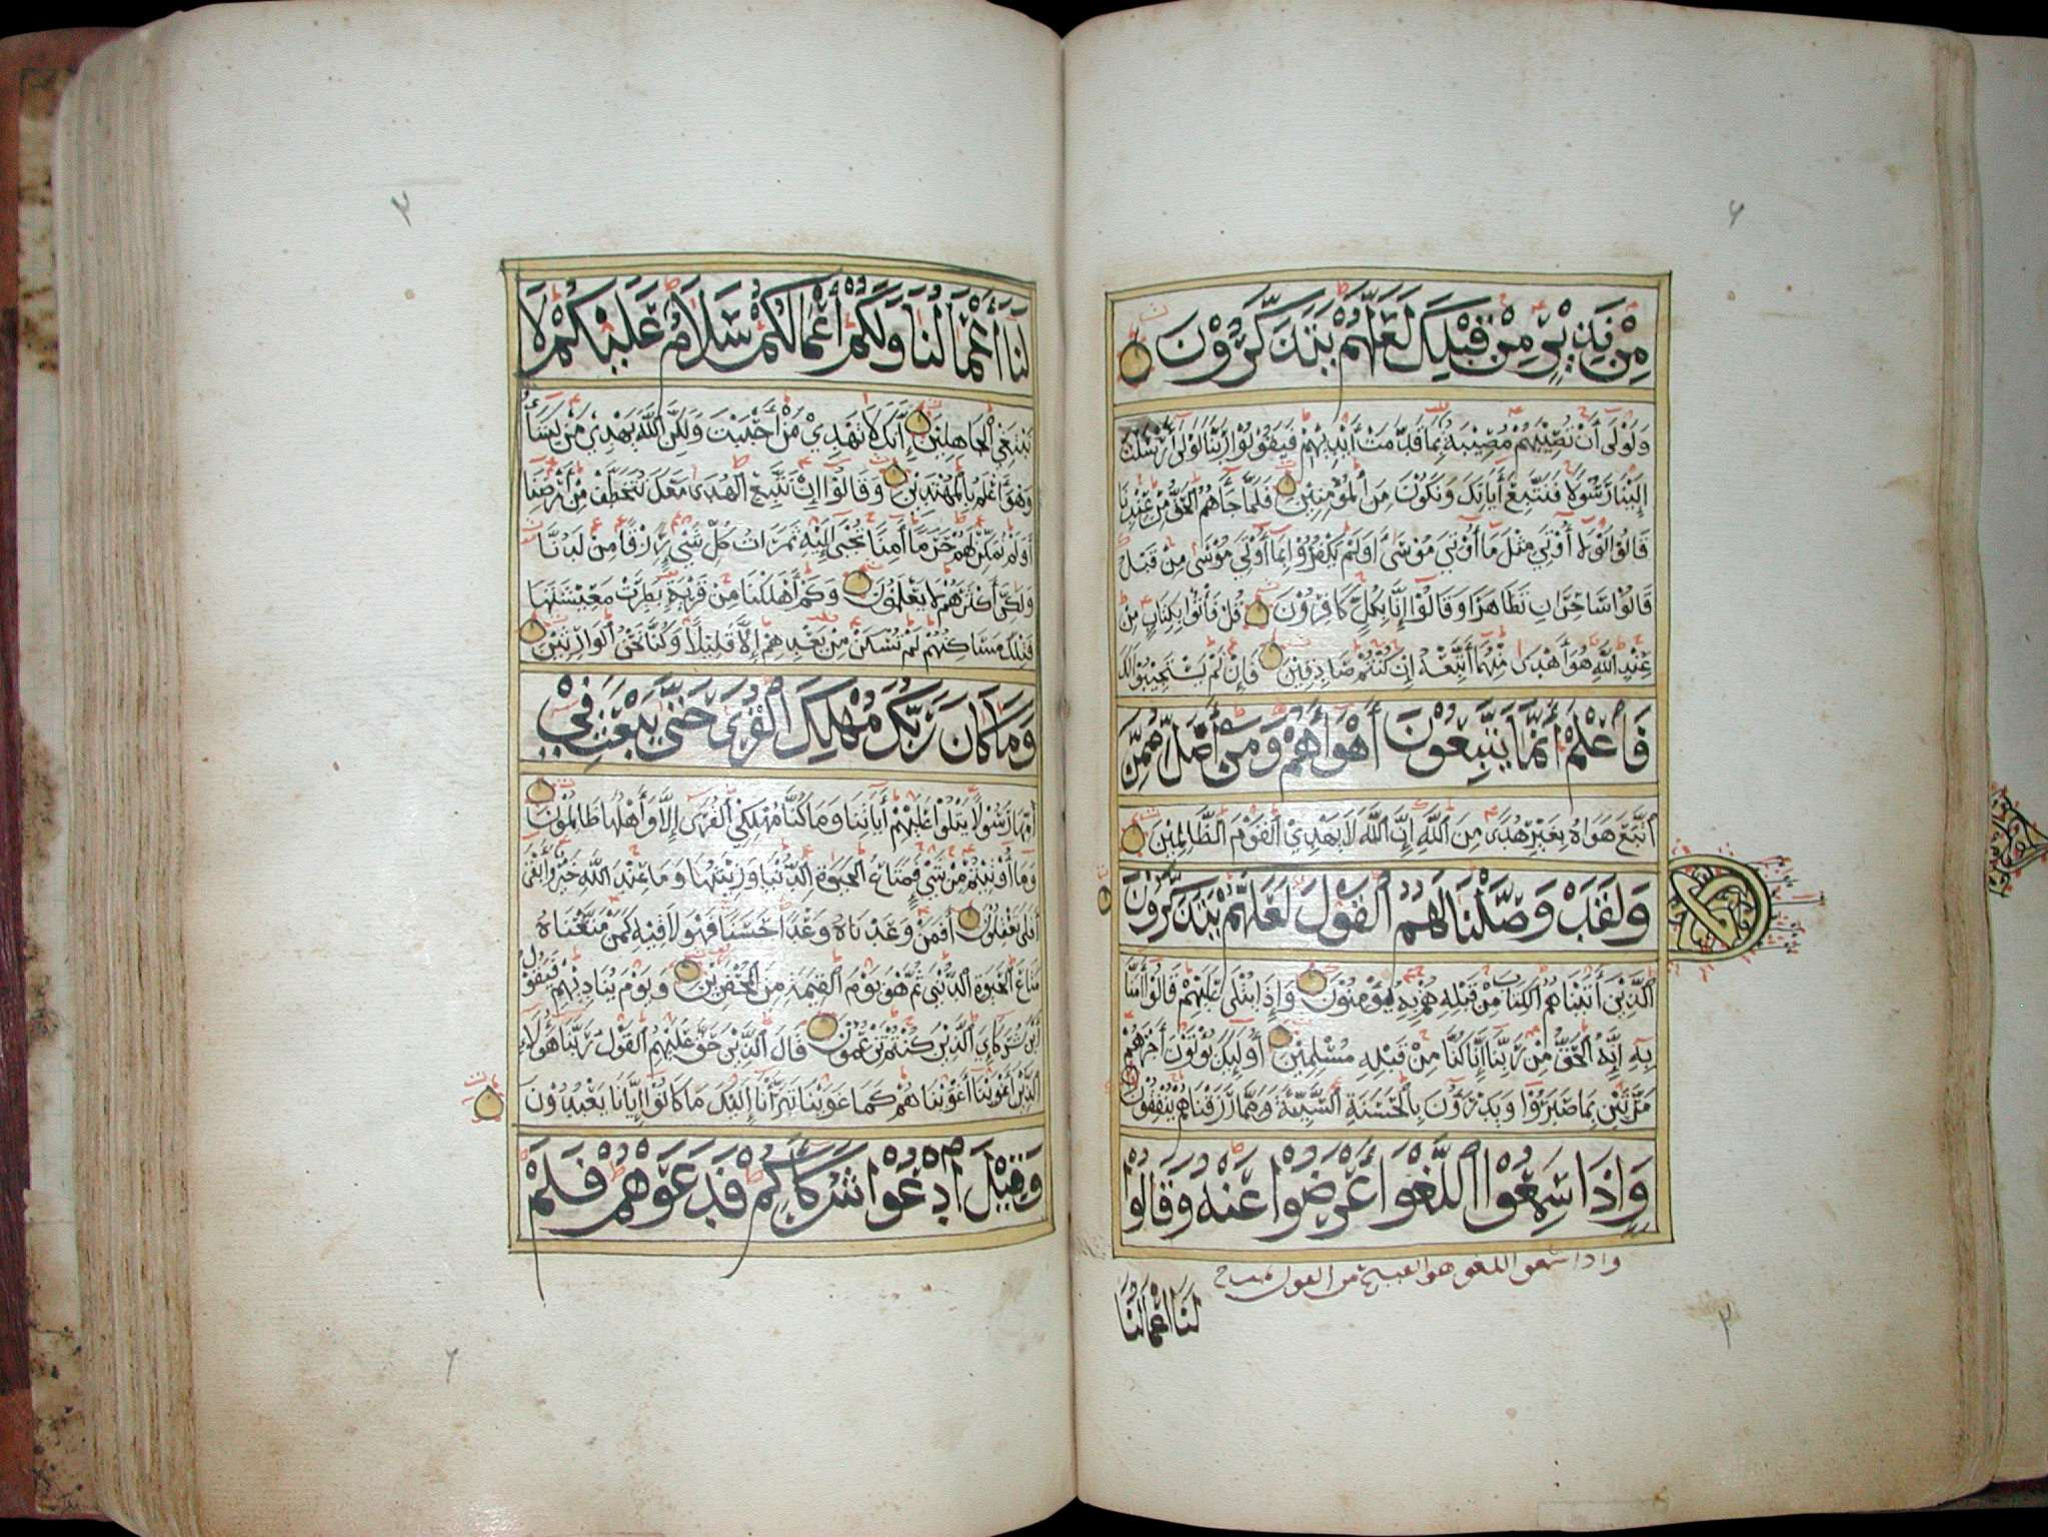 مِنْ نَذِيْرٍ مِنْ قَبْلِكَ لَعَلَّهُمْ يَتَذَكَّرُوْنَ
وَلَوْلَى أَنْ تُصِيْبَهُمْ مُصِيْبَةٌ بِمَا قَدَّمَتْ أَيْدِيْهِمْ فَيَقُوْلُوْا رَبَّنَا لَوْلَى أَرْسَلْتَ
إِلَيْنَا رَسُوْلًا فَنَتَّبِعَ أَيَاتِكَ وَنَكُوْنَ مِنَ الْمُؤْمِنِيْنَ فَلَمَّا جَآهُمُ الْحَقُّ مِنْ عِنْدِنَا
قَالُوْا لَوْلَا أُوْتِيَ مِثْلَ مَا أُوْتِيَ مُوْسَى أَوَلَمْ يَكْفُرُوْا بِمَا أُوْتِيَ مُوْسَى مِنْ قَبْلُ
قَالُوْا سَاحِرَانِ تَظَاهَرَا وَقَالُوْا إِنَّا بِكُلٍّ كَافِرُوْنَ قُلْ فَأْتُوْا بِكِتَابٍ مِنْ
عِنْدِ اللَّهِ هُوَ أَهْدَى مِنْهُمَا أَتَّبِعْهُ إِنْ كُنْتُمْ صَادِقِيْنَ فَإِنْ لَمْ يَسْتَجِيْبُوْا لَكَ
فَاعْلَمْ أَنَّمَا يَتَّبِعُوْنَ أَهْوَآهُمْ وَمَنْ أَضَلُّ مِمَّنِ
اتَّبَعَ هَوَاهُ بِغَيْرِ هُدًى مِنَ اللَّهِ إِنَّ اللَّهَ لَا يَهْدِيْ الْقَوْمَ الظَّالِمِيْنَ
وَلَقَدْ وَصَّلْنَا لَهُمُ الْقَوْلَ لَعَلَّهُمْ يَتَذَكَّرُوْنَ
الَّذِيْنَ أَتَيْنَاهُمُ الْكِتَابَ مِنْ قَبْلِهِ هُمْ بِهِ يُؤْمِنُوْنَ وَإِذَا يُتْلَى عَلَيْهِمْ قَالُوْا أَمَنَّا
بِهِ إِنَّهُ الْحَقُّ مِنْ رَبِّنَا إِنَّا كُنَّا مِنْ قَبْلِهِ مُسْلِمِيْنَ أُوْلَئِكَ يُؤْتَوْنَ أَجْرَهُمْ
مَرَّتَيْنِ بِمَا صَبَرُوْا وَيَدْرَؤُوْنَ بِالْحَسَنَةِ السَّيِّئَةَ وَمِمَّا رَزَقْنَاهُمْ يُنْفِقُوْنَ
وَإِذَا سَمِعُوْا اللَّغْوَ أَعْرَضُوْا عَنْهُ وَقَالُوْا
واذا سمعوا اللغو هو القبيح من القول
لَنَا أَعْمَالُنَا
لَنَا أَعْمَالُنَا وَلَكُمْ أَعْمَالُكُمْ سَلَامٌ عَلَيْكُمْ لَا
نَبْتَغِيْ الْجَاهِلِيْنَ إِنَّكَ لَا تَهْدِيْ مَنْ أَحْبَبْتَ وَلَكِنَّ اللَّهَ يَهْدِيْ مَنْ يَشَآءُ
وَهُوَ أَعْلَمُ بِالْمُهْتَدِيْنَ وَقَالُوْا إِنْ نَتَّبِعِ الْهُدَى مَعَكَ نُتَخَطَّفْ مِنْ أَرْضِنَا
أَوَلَمْ نُمَكِّنْ لَهُمْ حَرَمًا أَمِنًا يُجْبَى إِلَيْهِ ثَمَرَاتُ كُلِّ شَيْءٍ رِزْقًا مِنْ لَدُنَّا
وَلَكِنَّ أَكْثَرَهُمْ لَا يَعْلَمُوْنَ وَكَمْ أَهْلَكْنَا مِنْ قَرْيَةٍ بَطِرَتْ مَعِيْشَتَهَا
فَتِلْكَ مَسَاكِنُهُمْ لَمْ تُسْكَنْ مِنْ بَعْدِهِمْ إِلَّا قَلِيْلًا وَكُنَّا نَحْنُ الْوَارِثِيْنَ
وَمَا كَانَ رَبُّكَ مُهْلِكَ الْقُرَى حَتَّى يَبْعَثَ فِيْ
أُمِّهَا رَسُوْلًا يَتْلُوْا عَلَيْهِمْ أَيَاتِنَا وَمَا كُنَّا مُهْلِكِيْ الْقُرَى إِلَّا وَأَهْلُهَا ظَالِمُوْنَ
وَمَا أُوْتِيْتُمْ مِنْ شَيْءٍ فَمَتَاعُ الْحَيَوةِ الدُّنْيَا وَزِيْنَتُهَا وَمَا عِنْدَ اللَّهِ خَيْرٌ وَأَبْقَى
أَفَلَى تَعْقِلُوْنَ أَفَمَنْ وَعَدْنَاهُ وَعْدًا حَسَنًا فَهُوَ لَاقِيْهِ كَمَنْ مَتَّعْنَاهُ
مَتَاعَ الْحَيَوةِ الدُّنْيَى ثُمَّ هُوَ يَوْمَ الْقِيَمَةِ مِنَ الْمُحْضَرِيْنَ وَيَوْمَ يُنَادِيْهِمْ فَيَقُوْلُ
أَيْنَ شُرَكَاءِيَ الَّذِيْنَ كُنْتُمْ تَزْعُمُوْنَ قَالَ الَّذِيْنَ حَقَّ عَلَيْهِمُ الْقَوْلُ رَبَّنَا هَؤُلَآءِ
الَّذِيْنَ أَغْوَيْنَا أَغْوَيْنَاهُمْ كَمَا غَوَيْنَا تَبَرَّأْنَا إِلَيْكَ مَا كَانُوْا إِيَّانَا يَعْبُدُوْنَ
وَقِيْلَ ادْعُوْا شُرَكَآكُمْ فَدَعَوْهُمْ فَلَمْ